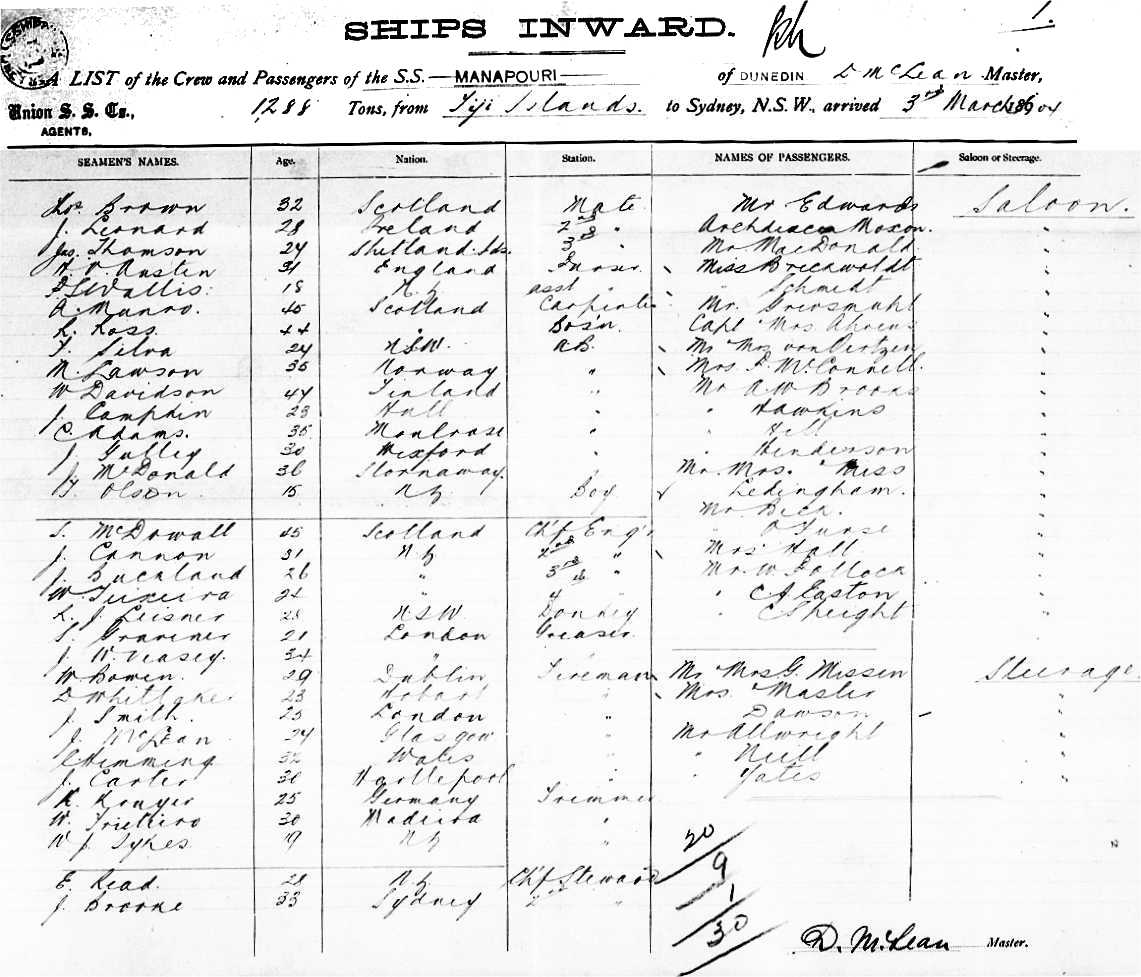 SHIPS INWARD.
1.
A LIST of the Crew and Passengers of the S.S. MANAPOURI of DUNEDIN D McLean Master,
Union S. S. Co., 1288 Tons, from Fiji Islands. to Sydney, N.S.W., arrived 3rd March 1904
AGENTS,
SEAMEN'S NAMES. Age. Nation. Station. NAMES OF PASSENGERS. Saloon or Steerage.
Brown 32 Scotland Mate Mr Edwards Saloon.
J. Leonard 28 Ireland 2nd " Archdeacn Moxon. "
Jas. Thomson 24 Shetland Ids. 3rd " Mr MacDonald "
Austin 31 England Purser Miss Brechwoldt "
Wallis. 18 N.Z. asst " " Schmidt "
A. Munro. 45 Scotland Carpenter Mr. "
Ross. 44 " Bos'n. Capt Mrs Ahrens "
Silva 24 N.S.W. A.B. Mr Mrs von Oertzen "
M. Lawson 35 Norway " Mrs McConnell "
W Davidson 44 Finland " Mr A W Brooks "
J. Camphin 23 Hull " " Hawkins "
C Adams. 35 Montrose " " Hill "
J. Gulley 30 Wexford " " Henderson "
J. McDonald 36 Stornaway " Mr. Mrs. Miss
Olson 15 N.Z. Boy Ledingham. "
Mr Beck. "
S. McDowall 45 Scotland Ch'f Eng'r "
J. Cannon 31 N.Z. 2nd " Mrs Hall "
J. Buckland 26 " 3rd " Mr. W. Pollock "
W. Teixeira 24 " 4th " C A Easton "
L. J. Leisner 28 N S W Donkey " C Speight "
S. 21 London Greaser.
J. W. Veasey. 34 "
W Bowen. 29 Dublin Fireman Mr Mrs G. Missen Steerage
D Whittaker 23 Hobart " Mrs. Master "
J. Smith. 25 London " Dawson "
J. McLean 24 Glasgow " Mr Allwright "
C Himming 32 Wales " " Neill "
J. Carter 36 Hartlepool " " Yates "
K. Kruger 25 Germany Trimmer
W. 30 Madeira "
W J. Sykes 19 N.Z. "
20
9
1
30
E. Read. 28 N.Z. Ch'f Steward
J. Broome 33 Sydney 2nd "
D. McLean Master.